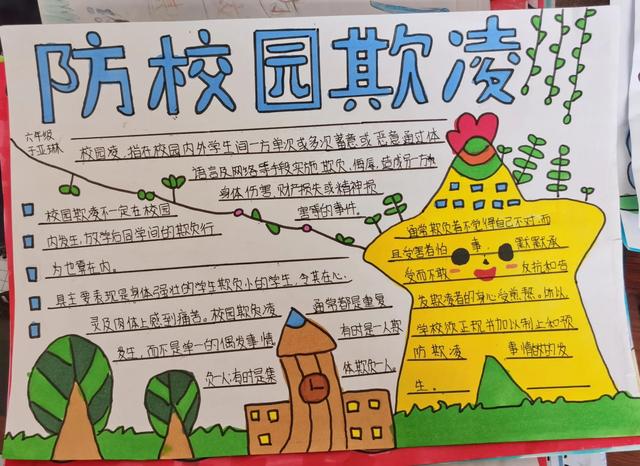 防校园欺凌
六年级
于亚琳
校园凌,指在校园内外学生间一方单次或多次蓄意或恶意通过体
语言及网络等手段实施欺负、侮辱,造成另一方
身体伤害、财产损失或精神损
害等的事件。
校园欺凌不一定在校园
内发生,放学后同学间的欺负行
为也算在内。
具主要表现是身体强壮的学生欺负小的学生,令其在心
灵及肉体上感到痛苦。校园欺负凌
通常都是重复
发生,而不是单一的偶发事情
有时是一人欺
负一人;有时是集
体欺负一人。
通常欺负者不觉得自己不对,而
且受害者怕事,默默承
受而不敢反抗和告
发欺凌者的身心受煎熬。所以
学校应正视并加以制止和预
防欺凌事情的发
生。